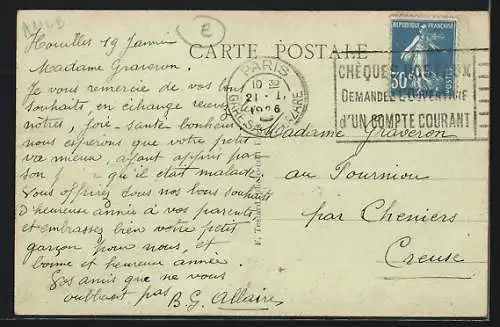 E
CARTE POSTALE
Houilles 19 Janvier
Madame Graveron.
Je vous remercie de vos bons
souhaits, en échange recevez
nôtres, joie - santé bonheur
nous espérons que votre petit
va mieux, ayant appris par
son qu'il était malade
Vous offrirez tous nos bons souhaits
d'heureuse année à vos parents
et embrassez bien votre petit
garçon pour nous, et
bonne et heureuse année.
Vos amis que ne vous
oublient pas B. G. Allaire
PARIS
GARE ST LAZARE
10
21 - I
1926
REPUBLIQUE FRANÇAISE
30
CHÈQUES POSTAUX
DEMANDEZ L'OUVERTURE
d'UN COMPTE COURANT
Madame Graveron
au Tourniou
par Cheniers
Creuse